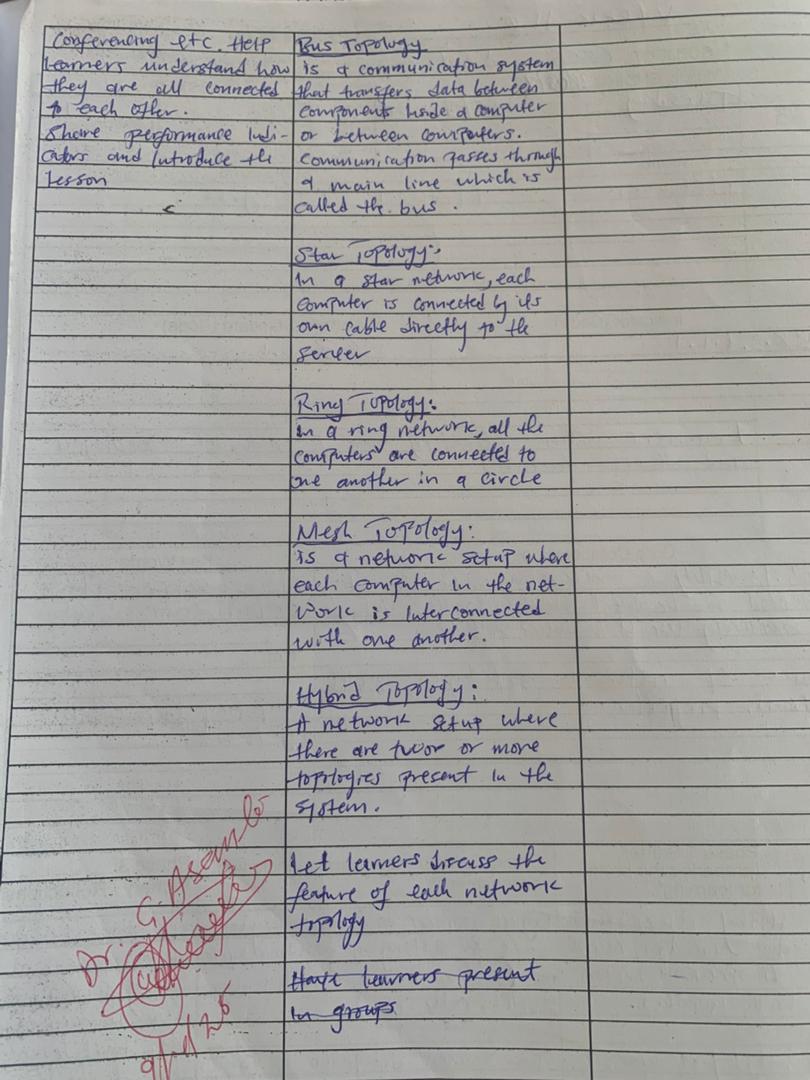 Conferencing etc. Help
learners understand how
they are all connected
to each other.
Share performance Indi-
cators and introduce the
Lesson
Bus Topology
is a communication system
that transfers data between
components inside a computer
or between computers.
Communication passes through
a main line which is
called the bus.
Star Topology:
In a star network, each
Computer is connected by its
own cable directly to the
server
Ring Topology:
In a ring network, all the
computers are connected to
one another in a circle
Mesh Topology:
is a network setup where
each computer in the net-
work is Interconnected
with one another.
Hybrid Topology:
A network setup where
there are twor or more
toplogies present in the
system.
Let learners discuss the
feature of each network
toplogy
Have learners present
in groups
Dr. G. Asamb